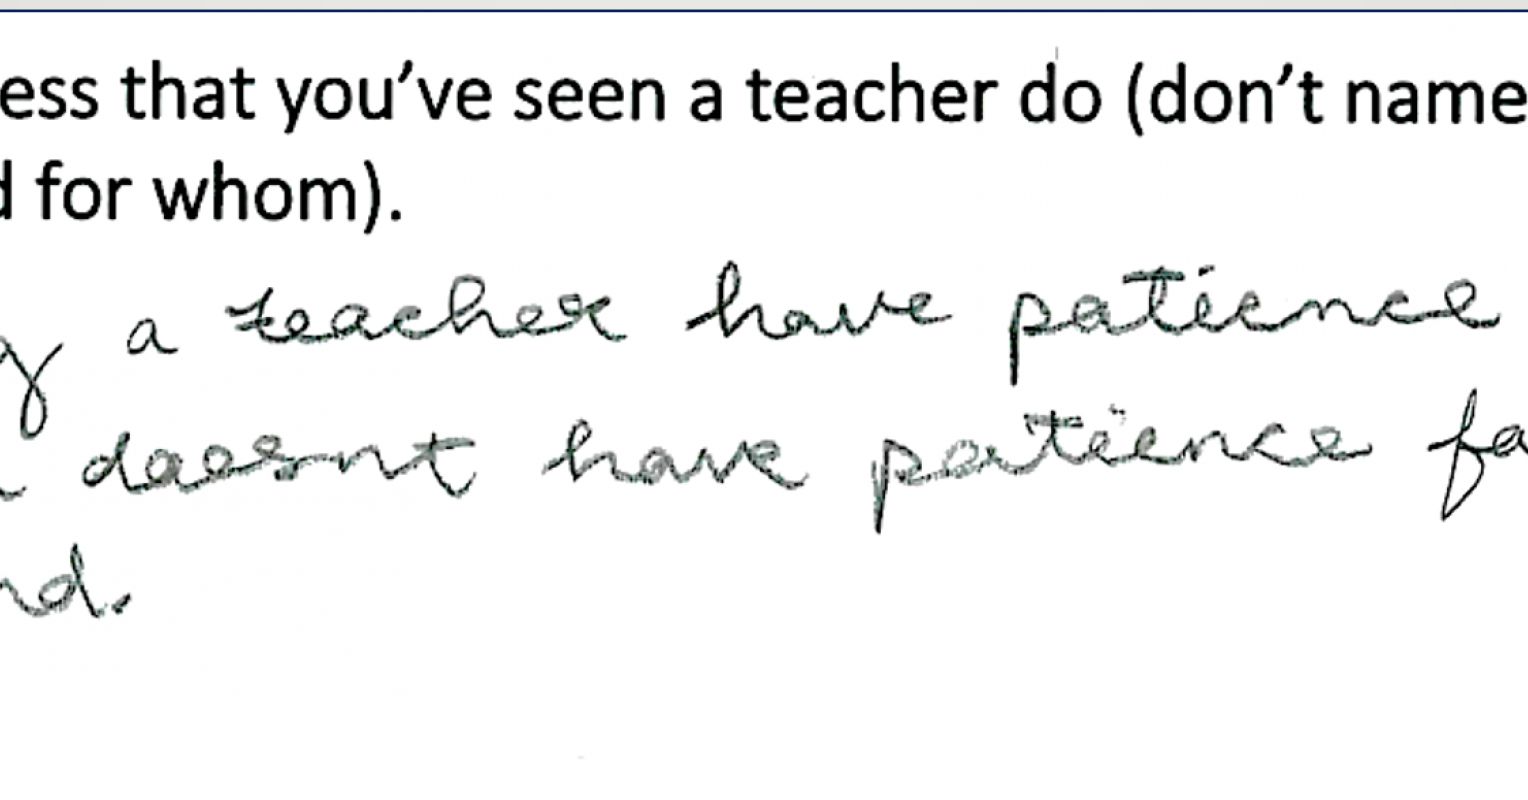 ess that you've seen a teacher do (don't name
d for whom).
y a teacher have patience
doesnt have patience fo
nd.